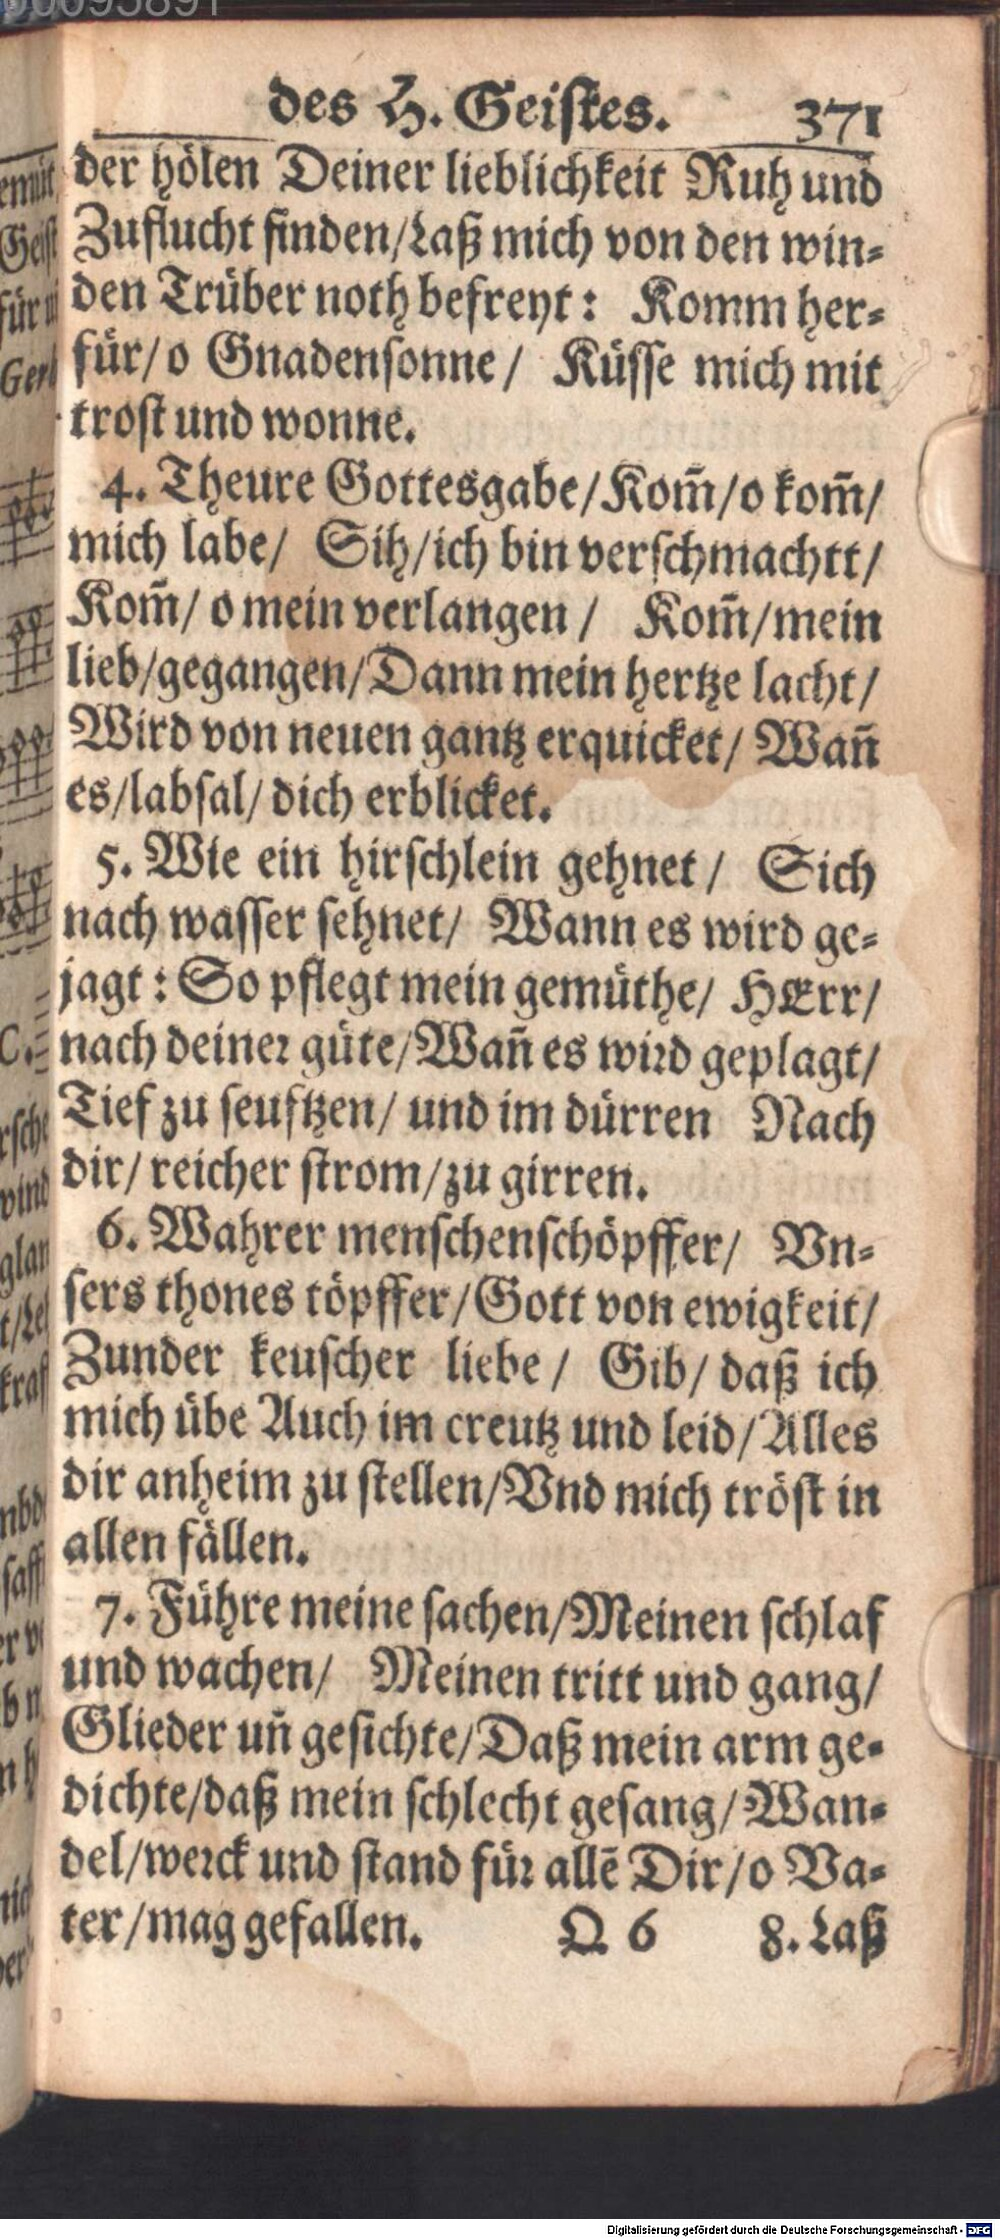 des H. Geistes. 371
der hölen Deiner lieblichkeit Ruh und
Zuflucht finden/Laß mich von den win-
den Trüber noth befreyt: Komm her-
für/o Gnadensonne/ Küsse mich mit
trost und wonne.
4. Theure Gottesgabe/Kom̃/o kom̃/
mich labe/ Sih/ich bin verschmachtt/
Kom̃/ o mein verlangen/ Kom̃/mein
lieb/gegangen/Dann mein hertze lacht/
Wird von neuen gantz erquicket/ Wañ
es/labsal/dich erblicket.
5. Wie ein hirschlein gehnet/ Sich
nach wasser sehnet/ Wann es wird ge-
jagt: So pflegt mein gemüthe/ HErr/
nach deiner güte/Wañ es wird geplagt/
Tief zu seuftzen/ und im dürren Nach
dir/ reicher strom/zu girren.
6. Wahrer menschenschöpffer/ Vn-
sers thones töpffer/Gott von ewigkeit/
Zunder keuscher liebe/ Gib/ daß ich
mich übe Auch im creutz und leid/Alles
dir anheim zu stellen/Vnd mich tröst in
allen fällen.
7. Führe meine sachen/Meinen schlaf
und wachen/ Meinen tritt und gang/
Glieder uñ gesichte/Daß mein arm ge-
dichte/daß mein schlecht gesang/Wan-
del/werck und stand für allē Dir/o Va-
ter/mag gefallen. Q 6 8. Laß
Digitalisierung gefördert durch die Deutsche Forschungsgemeinschaft - DFG